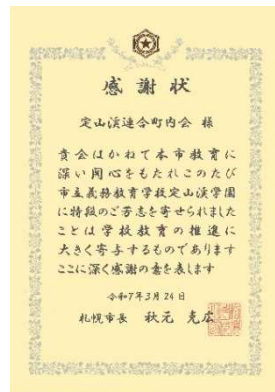 感謝状
定山渓連合町内会 様
貴会はかねて本市教育に
深い関心をもたれこのたび
市立義務教育学校定山渓学園
に特段のご芳志を寄せられました
ことは学校教育の推進に
大きく寄与するものであります
ここに深く感謝の意を表します
令和7年3月24日
札幌市長 秋元克広